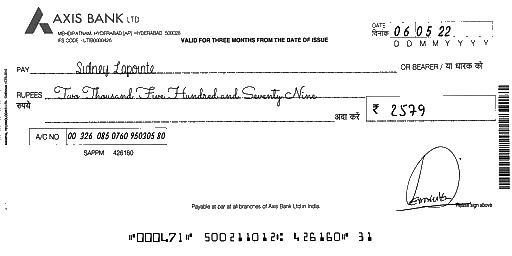 AXIS BANK LTD
MEHDIPATNAM, HYDERABAD [AP] HYDERABAD 500028
IFS CODE - UTIB0000426
VALID FOR THREE MONTHS FROM THE DATE OF ISSUE
DATE दिनांक 06 05 22
D D M M Y Y Y Y
PAY Sidney Lapointe OR BEARER / या धारक को
RUPEES रुपये Two Thousand Five Hundred and Seventy Nine
अदा करें ₹ 2579
A/C NO 00 326 085 0760 950305 80
SAPPM 426160
Payable at par at all branches of Axis Bank Ltd in India.
Please sign above
"000471" 500211012: 426160" 31